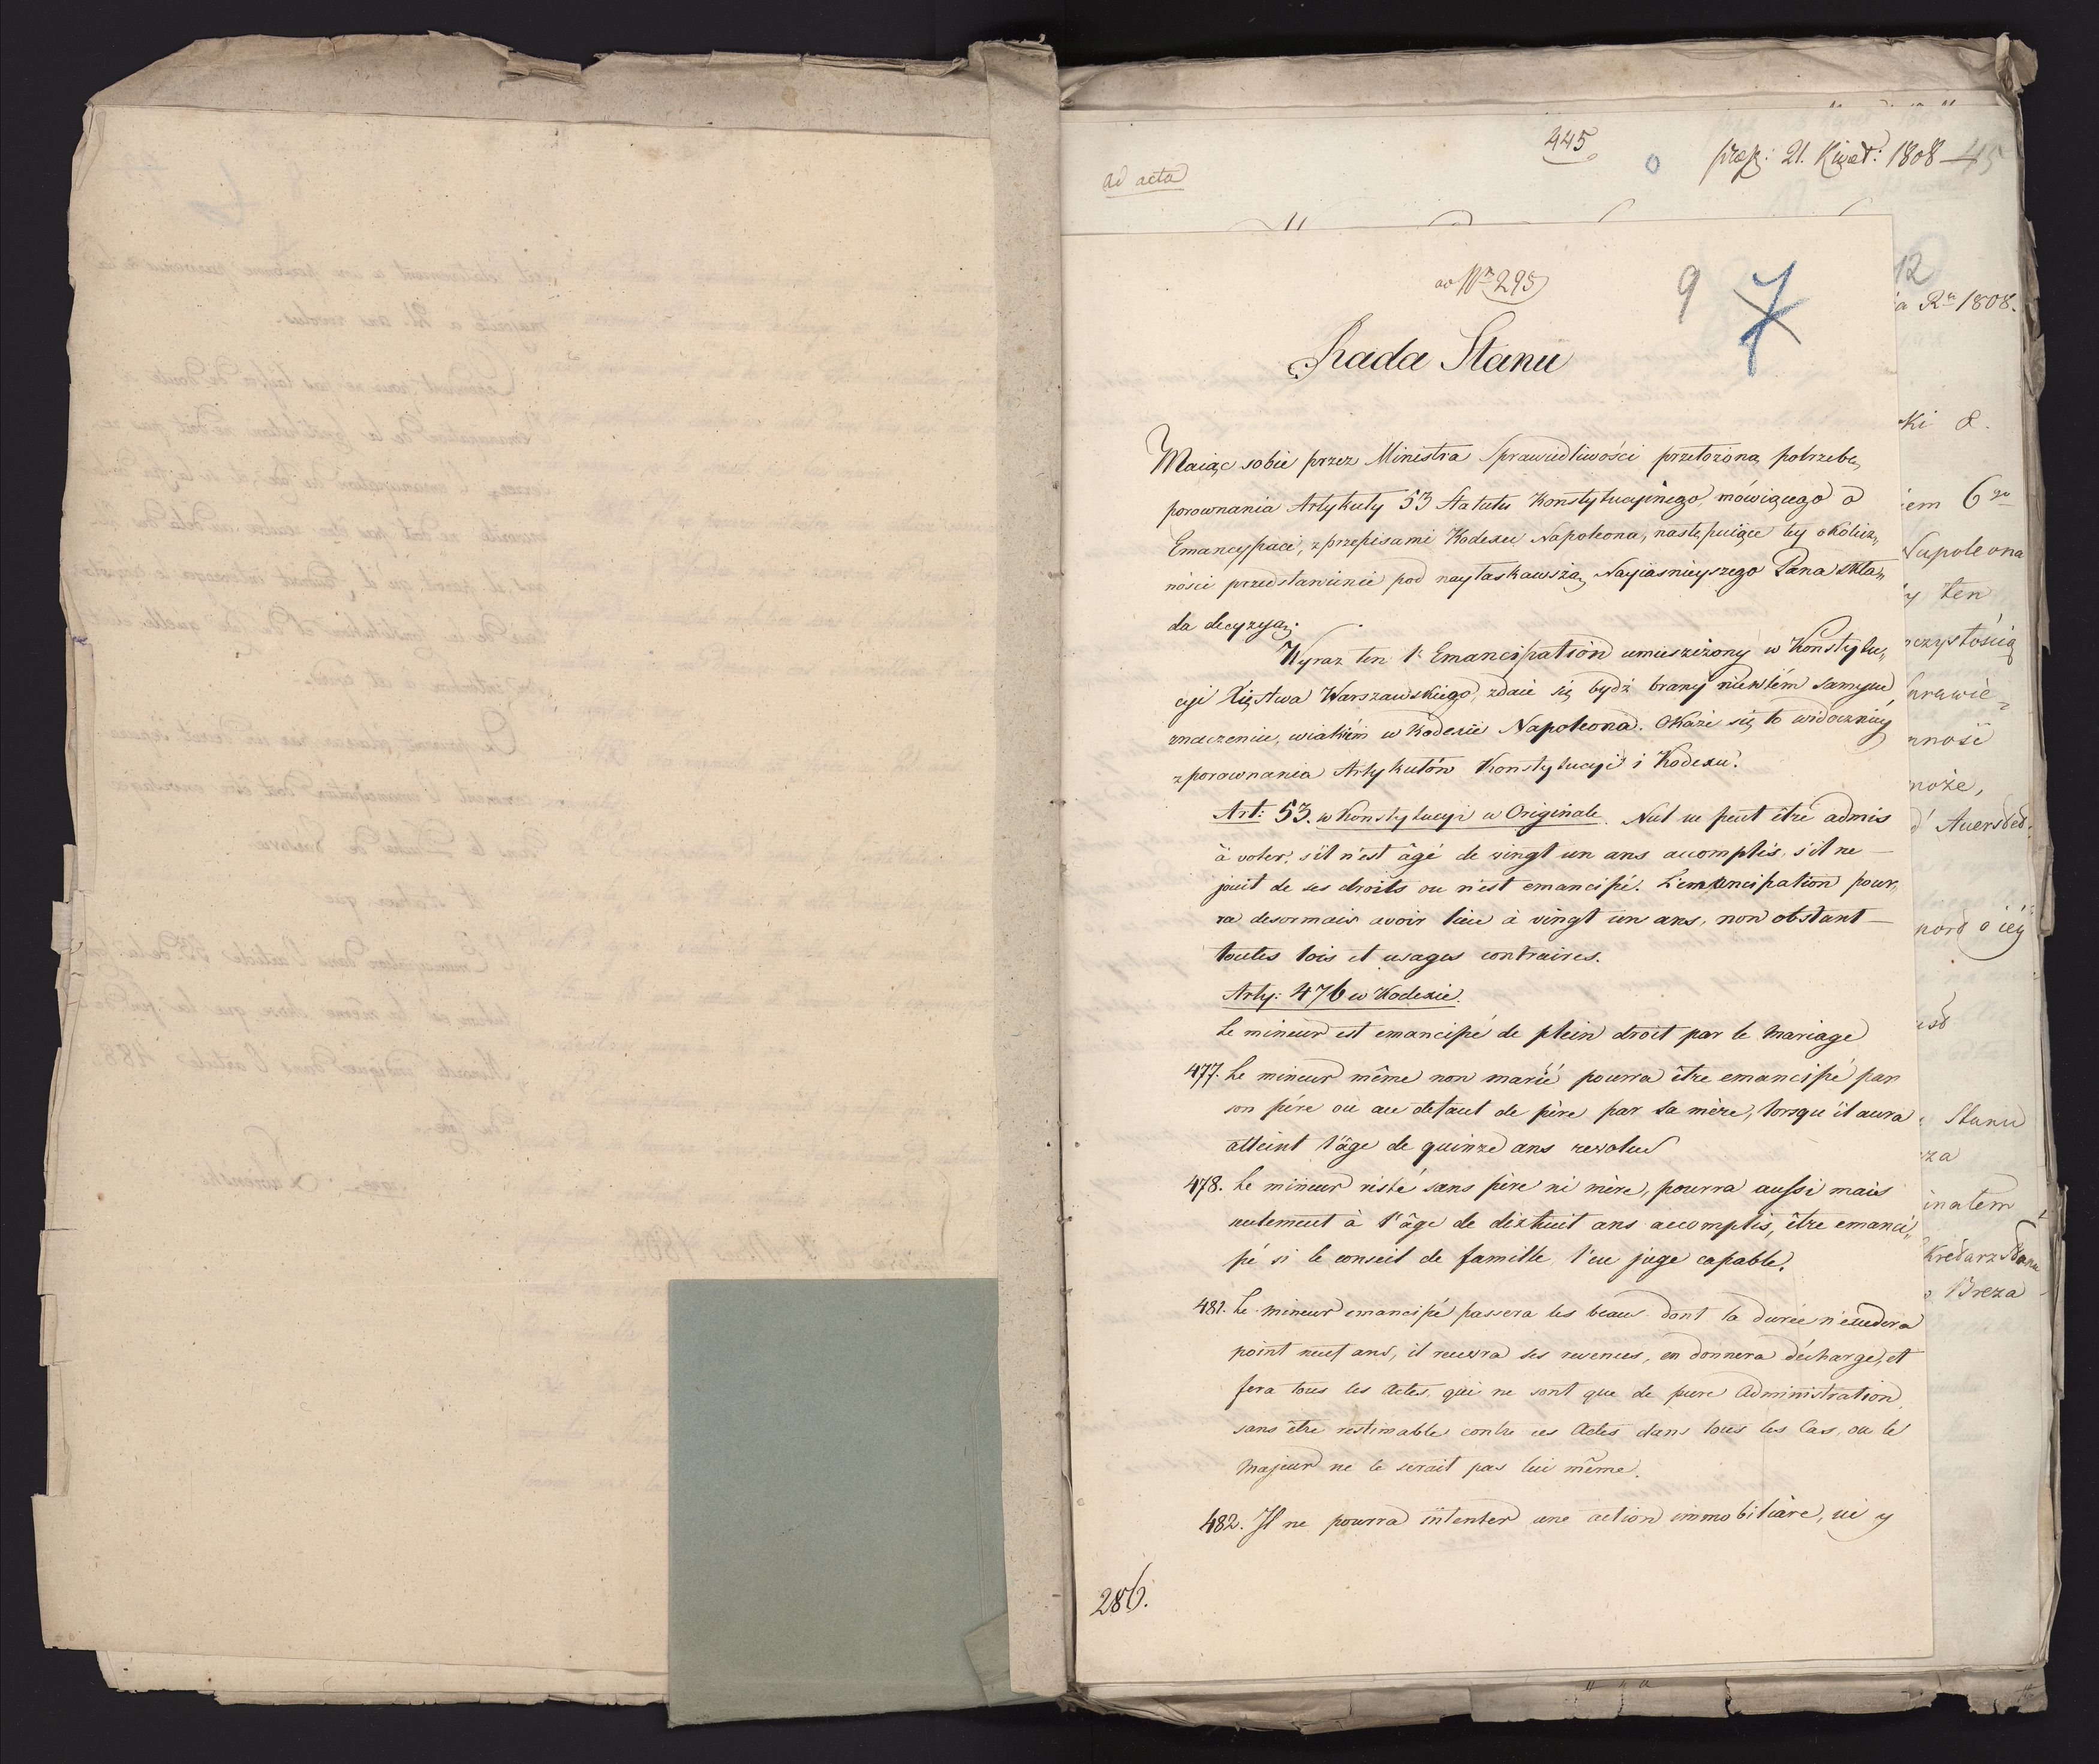 445
ad acta
præs: 21. Kwiet: 1808
45
ad Nr 295
9
7
Rada Stanu
Maiąc sobie przez Ministra Sprawiedliwości przełożoną potrzebę
porownania Artykuły 53 Statutu Konstytucyinego, mówiącego o
Emancypacii, z przepisami Kodexu Napoleona, nastepuiące tey okolicz„
ności przedstawienie pod naylaskawszą Nayiasnieyszego Pana skła„
da decyzyą.
Wyraz ten l'Emancipation umieszczony w Konstytu„
cyi Xięstwa Warszawskiego, zdaie się bydź brany niewtém samym
znaczeniu, wiakiém w Kodexie Napoleona. Okaże się to widoczniey
z porownania Artykułów Konstytucyi i Kodexu.
Art: 53. w Konstytucyi w Originale. Nul ne peut être admis
à voter, s'il n'est âgé de vingt un ans accomplis, s'il ne
jouit de ses droits ou n'est emancipé. L'emancipation pour„
ra desormais avoir lieu à vingt un ans, non obstant
toutes lois et usages contraires.
Arty: 476 w Kodexie.
Le mineur est emancipé de plein droit par le mariage
477. Le mineur même non marié pourra être emancipé par
son pére ou au defaut de père par sa mère, lorsqu'il aura
atteint l'âge de quinze ans revolus
478. Le mineur resté sans père ni mère, pourra aussi mais
seulement à l'âge de dixhuit ans accomplis, être emanci„
pé si le conseil de famille l'en juge capable.
481. Le mineur emancipé passera les beaux dont la durée n'excedera
point neuf ans, il recevra ses revenues, en donnera décharge, et
fera tous les Actes, qui ne sont que de pure administration,
sans être restimable contre ces Actes dans tous les Cas, ou le
majeur ne le serait pas lui même.
482. Il ne pourra intenter une action immobiliàre, ni y
286.
12
a Ru 1808.
ski &.
iem 6go
Napoleona
y ten
oczystością
noże,
d'Auersted.
Stanu
za
inalem
kretarz Stanu
Breza